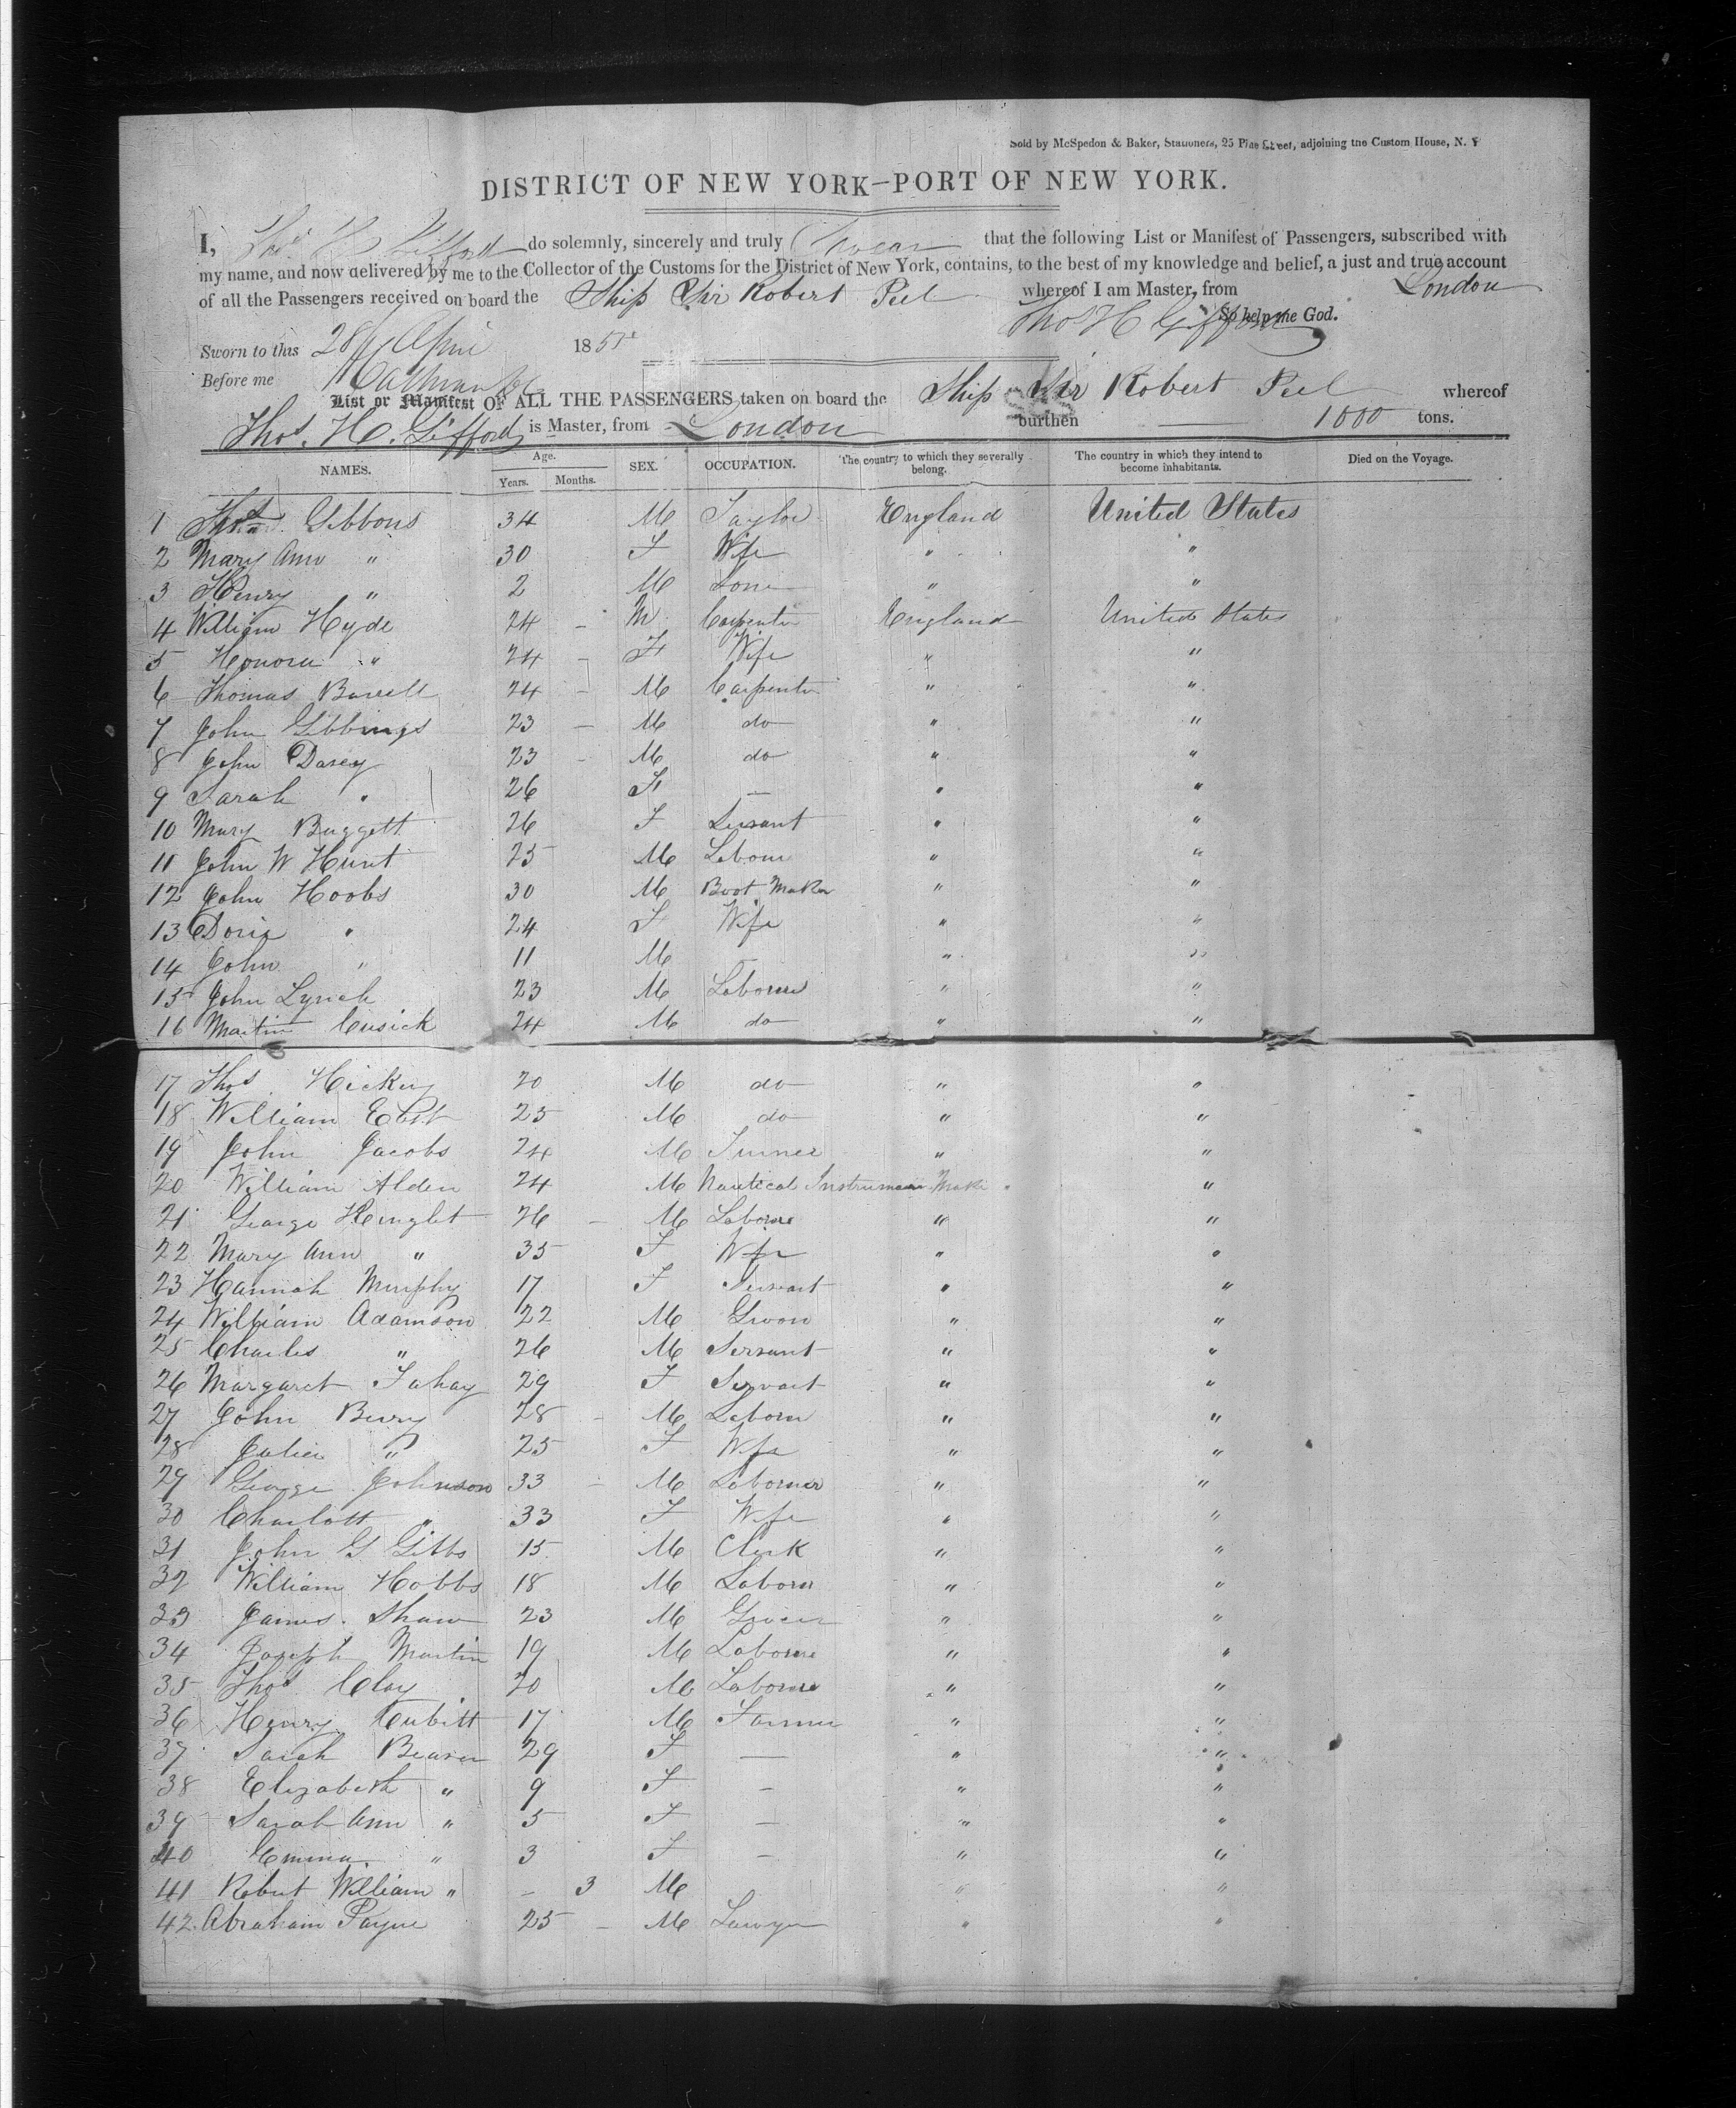 Sold by McSpedon & Baker, Stationers, 25 Pine Street, adjoining the Custom House, N. Y
DISTRICT OF NEW YORK—PORT OF NEW YORK.
I, Thos. H. Gifford do solemnly, sincerely and truly Swear that the following List or Manifest of Passengers, subscribed with
my name, and now delivered by me to the Collector of the Customs for the District of New York, contains, to the best of my knowledge and belief, a just and true account
of all the Passengers received on board the Ship Sir Robert Peel whereof I am Master, from London
So help me God.
Thos H Gifford
Sworn to this 28th April 1851
Before me
List or Manifest OF ALL THE PASSENGERS taken on board the Ship Sir Robert Peel whereof
Thos. H. Gifford is Master, from London burthen 1000 tons.
NAMES. Age. Years. Months. SEX. OCCUPATION. The country to which they severally belong. The country in which they intend to become inhabitants. Died on the Voyage.
1 Thos. Gibbons 34 M Taylor England United States
2 Mary Ann " 30 F Wife " "
3 Henry " 2 M Sone " "
4 William Hyde 24 - M Carpenter England United States
5 Honora " 24 - F Wife " "
6 Thomas Burrell 24 - M Carpenter " "
7 John Gibbings 23 - M do " "
8 John Darey 23 - M do " "
9 Sarah " 26 F — " "
10 Mary Buggett 26 F Sersant " "
11 John W Hunt 25 M Laborer " "
12 John Hoobs 30 M Boot Maker " "
13 " 24 F Wife " "
14 John " 11 M - " "
15 John Lynch 23 M Laborer " "
16 Martin Cusick 24 M do " "
17 Thos. Hickey 20 M do " "
18 William East 25 M do " "
19 John Jacobs 24 M Turner " "
20 William Alden 24 M Nautical Instrument Maker " "
21 George 26 - M Laborer " "
22 Mary Ann " 35 F Wife " "
23 Hannah Murphy 17 F Servant " "
24 William Adamson 22 M " "
25 Charles " 26 M Sersant " "
26 Margaret Fahay 29 F Servant " "
27 John Berry 28 - M Laborer " "
28 Julia " 25 F Wife " "
29 George Johnson 33 - M Laborer " "
30 Charlott " 33 F Wife " "
31 John G Gibbs 15 M Clerk " "
32 William Hobbs 18 M Laborer " "
33 James Shaw 23 M Grocer " "
34 Joseph Martin 19 M Laborer " "
35 Thos. Clay 20 M Laborer " "
36 Henry Cubitt 17 M Farmer " "
37 Sarah Beaver 29 F — " "
38 Elizabeth " 9 F - " "
39 Sarah Ann " 5 F - " "
40 Emma " 3 F - " "
41 Robert William " - 3 M " "
42 Abraham Payne 25 - M Lawyer " "